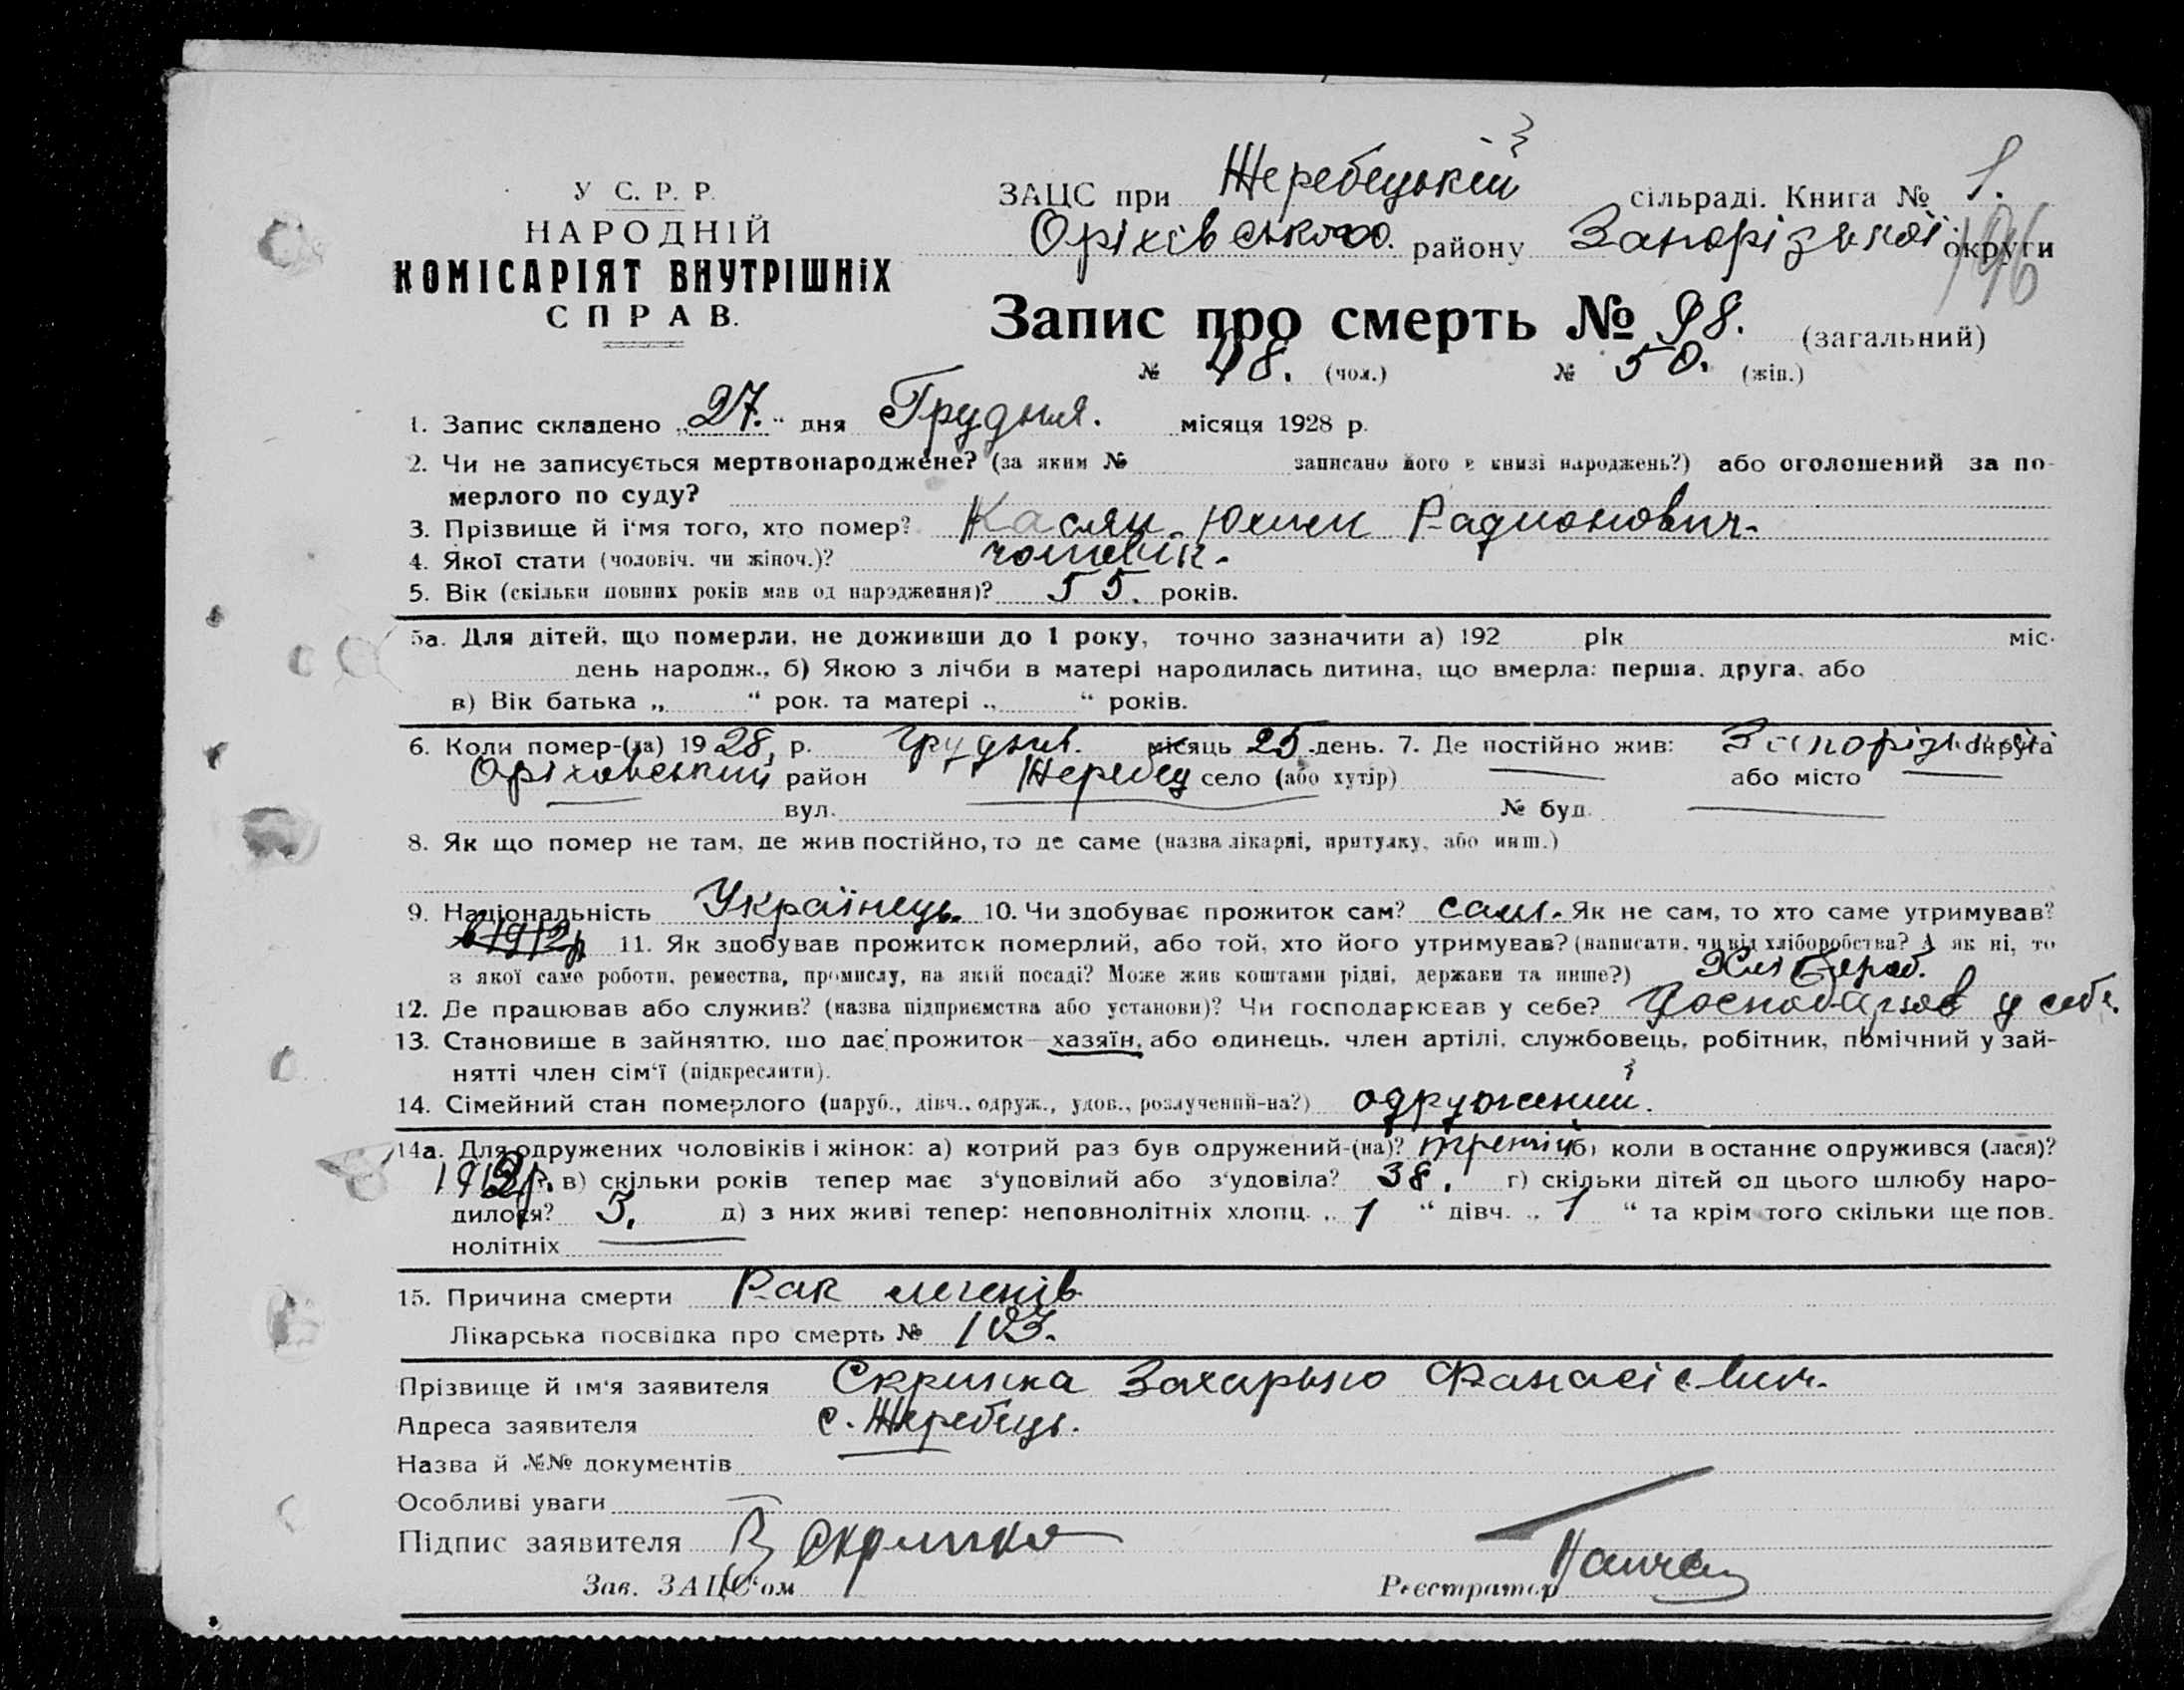 У С. Р. Р.
НАРОДНІЙ
КОМІСАРІЯТ ВНУТРІШНІХ
СПРАВ.
ЗАЦС при Жеребецькій сільраді. Книга № 1.
Оріхівського. району Запорізької округи
196
Запис про смерть № 98. (загальний)
№ 48. (чол.) № 50. (жін.)
1. Запис складено „27.“ дня Грудня. місяця 1928 р.
2. Чи не записується мертвонароджене? (за яким № записано його в книзі народжень?) або оголошений за по-
мерлого по суду?
3. Прізвище й і'мя того, хто помер? Касян Юхим Радионович.
4. Якої стати (чоловіч. чи жіноч.)? чоловік.
5. Вік (скільки повних років мав од народження)? 55. років.
5а. Для дітей, що померли, не доживши до 1 року, точно зазначити а) 192 рік міс.
день народж., б) Якою з лічби в матері народилась дитина, що вмерла: перша, друга, або
в) Вік батька „ “ рок. та матері „ “ років.
6. Коли помер-(ла) 1928, р. Грудня. місяць 25.день. 7. Де постійно жив: Запорізька округа
Оріховський район Жеребец село (або хутір) або місто
вул. № буд.
8. Як що помер не там, де жив постійно, то де саме (назва лікарні, притулку, або инш.)
9. Національність Українець. 10. Чи здобуває прожиток сам? сам. Як не сам, то хто саме утримував?
11. Як здобував прожиток померлий, або той, хто його утримував? (написати, чи від хліборобства? А як ні, то
з якої саме роботи, ремества, промислу, на якій посаді? Може жив коштами рідні, держави та инше?) Хлібороб.
12. Де працював або служив? (назва підприємства або установи)? Чи господарював у себе? Господарював у себе.
13. Становище в зайняттю, що дає прожиток—хазяїн, або одинець, член артілі, службовець, робітник, помічний у зай-
нятті член сім'ї (підкреслити).
14. Сімейний стан померлого (паруб., дівч., одруж., удов., розлучений-на?) одружений.
14а. Для одружених чоловіків і жінок: а) котрий раз був одружений-(на)? третій б) коли в останнє одружився (лася)?
1912р. в) скільки років тепер має з'удовілий або з'удовіла? 38. г) скільки дітей од цього шлюбу наро-
дилося? 3. д) з них живі тепер: неповнолітніх хлопц. „ 1 “ дівч. „ 1 “ та крім того скільки ще пов.
нолітніх
15. Причина смерти Рак легенів
Лікарська посвідка про смерть № 103.
Прізвище й ім'я заявителя Скрипка Захарько Фанасієвич.
Адреса заявителя с. Жеребець.
Назва й №№ документів
Особливі уваги
Підпис заявителя З Скрипка
Зав. ЗАЦС'ом Реєстратор